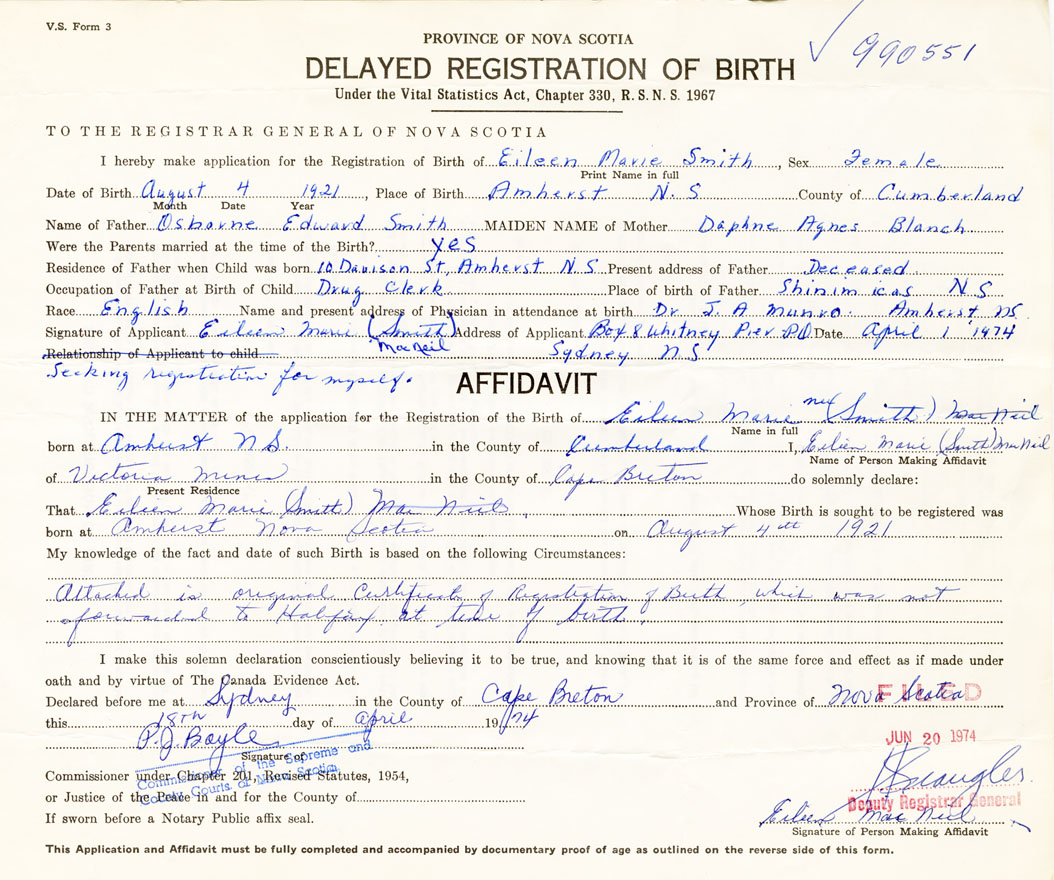 V.S. Form 3
990551
PROVINCE OF NOVA SCOTIA
DELAYED REGISTRATION OF BIRTH
Under the Vital Statistics Act, Chapter 330, R.S.N.S. 1967
TO THE REGISTRAR GENERAL OF NOVA SCOTIA
I hereby make application for the Registration of Birth of Eileen Marie Smith, Sex Female
Print Name in full
Date of Birth August 4 1921, Place of Birth Amherst N.S County of Cumberland
Month Date Year
Name of Father Osborne Edward Smith MAIDEN NAME of Mother Daphne Agnes Blanch
Were the Parents married at the time of the Birth? yes
Residence of Father when Child was born 10 Davison St, Amherst N.S Present address of Father Deceased
Occupation of Father at Birth of Child Drug Clerk Place of birth of Father Shinimicas N S
Race English Name and present address of Physician in attendance at birth Dr. J. A Munro. Amherst NS
Signature of Applicant Eileen Marie (Smith) Address of Applicant Box 8 Whitney Pier PO Date April 1 1974
MacNeil
Relationship of Applicant to child Sydney N S
Seeking registration for myself.
AFFIDAVIT
IN THE MATTER of the application for the Registration of the Birth of Eileen Marie (Smith) MacNeil
Name in full
born at Amherst N.S. in the County of Cumberland I, Eileen Marie (Smith) MacNeil
Name of Person Making Affidavit
of Victoria Mines in the County of Cape Breton do solemnly declare:
Present Residence
That Eileen Marie (Smith) MacNeil, Whose Birth is sought to be registered was
born at Amherst Nova Scotia on August 4th 1921
My knowledge of the fact and date of such Birth is based on the following Circumstances:
Attached is original Certificate of Registration of Birth, which was not
forwarded to Halifax at time of birth.
I make this solemn declaration conscientiously believing it to be true, and knowing that it is of the same force and effect as if made under
oath and by virtue of The Canada Evidence Act.
Declared before me at Sydney in the County of Cape Breton and Province of Nova Scotia
FILED
this 18th day of April 1974
JUN 20 1974
P.J. Boyle
Signature of
Commissioner of the Supreme and
County Courts of Nova Scotia
Commissioner under Chapter 201, Revised Statutes, 1954,
or Justice of the Peace in and for the County of
Deputy Registrar General
If sworn before a Notary Public affix seal.
Eileen MacNeil
Signature of Person Making Affidavit
This Application and Affidavit must be fully completed and accompanied by documentary proof of age as outlined on the reverse side of this form.